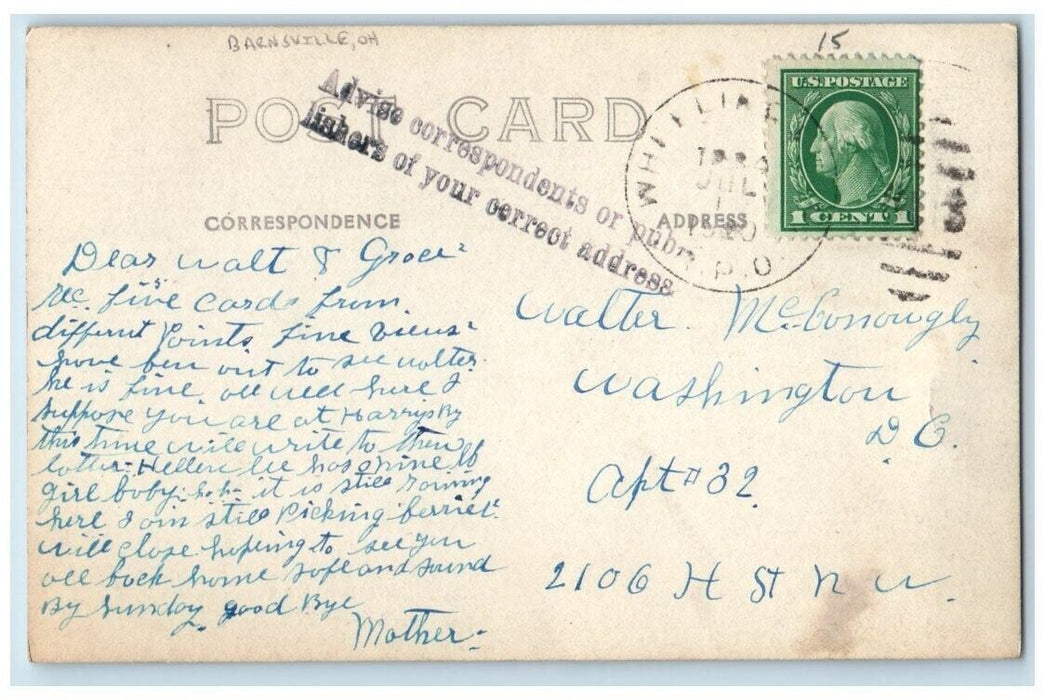 BARNSVILLE, OH
15
POST CARD
Advise correspondents or pub-
lishers of your correct address
U.S.POSTAGE
1 CENT 1
JUL
R.P.O.
CORRESPONDENCE
ADDRESS
Dear Walt & Grace
Rec five cards from
different Points fine views
have ben out to see walter
he is fine. all well here I
suppose you are at Harrys By
this time will write to them
latter. Hellen lee has a nine lb
girl baby. ha ha it is still raining
here I am still Picking berries.
will close hoping to see you
all back home safe and sound
By Sunday. good Bye
Mother.
Walter. McConougly
Washington
D C.
Apt # 32.
2106 H St N W.